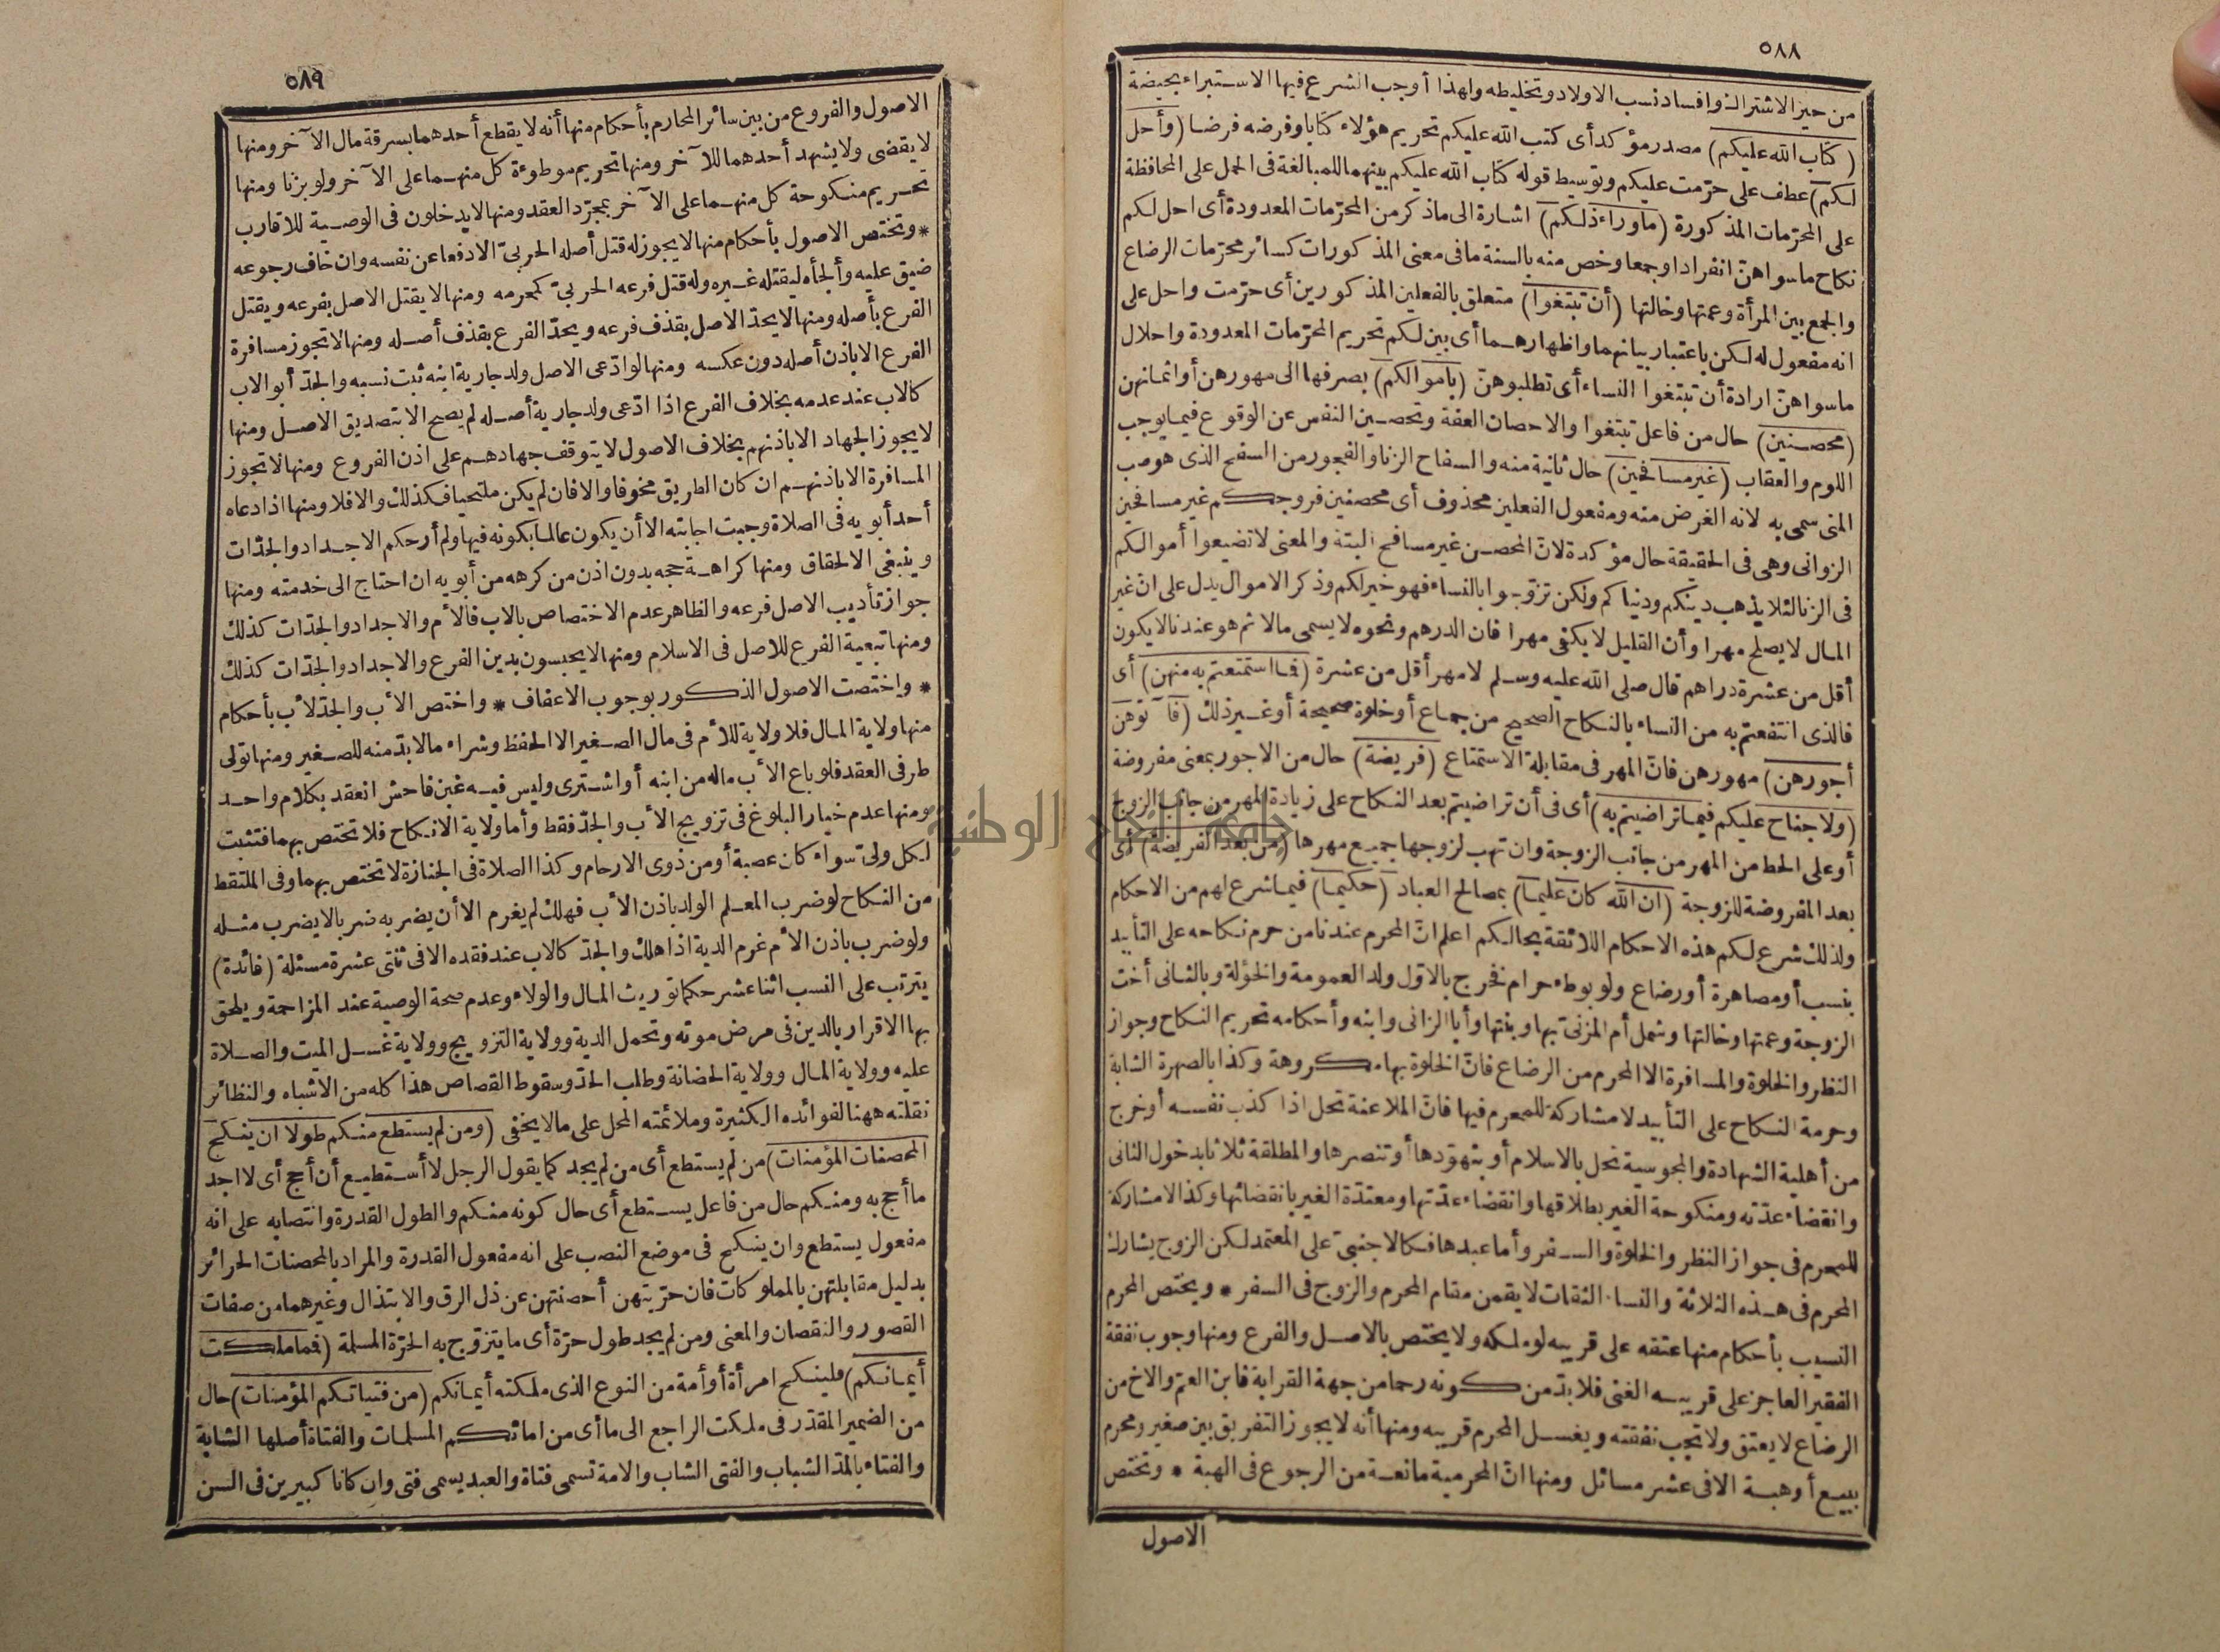 ٥٨٨
من حيز الاشتراك وافساد نسب الاولاد وتخليطه ولهذا أوجب الشرع فيها الاستبراء بحيضة
(كتاب الله عليكم) مصدر مؤكد أى كتب الله عليكم تحريم هؤلاء كتابا وفرضه فرضا (وأحل
لكم) عطف على حرّمت عليكم وتوسيط قوله كتاب الله عليكم بينهما للمبالغة فى الحمل على المحافظة
على المحرّمات المذكورة (ماوراء ذلكم) اشارة الى ماذكر من المحرّمات المعدودة أى احل لكم
نكاح ماسواهنّ انفرادا وجمعا وخص منه بالسنة مافى معنى المذكورات كسائر محرّمات الرضاع
والجمع بين المرأة وعمتها وخالتها (أن تبتغوا) متعلق بالفعلين المذكورين أى حرّمت واحل على
انه مفعول له لكن باعتبار بيانهما واظهارهما أى بين لكم تحريم المحرّمات المعدودة واحلال
ماسواهنّ ارادة أن تبتغوا النساء أى تطلبوهنّ (بأموالكم) بصرفها الى مهورهن أو اثمانهن
(محصنين) حال من فاعل تبتغوا والاحصان العفة وتحصين النفس عن الوقوع فيما يوجب
اللوم والعقاب (غير مسافحين) حال ثانية منه والسفاح الزنا والفجور من السفح الذى هو صب
المنى سمى به لانه الغرض منه ومفعول الفعلين محذوف أى محصنين فروجكم غير مسافحين
الزوانى وهى فى الحقيقة حال مؤكدة لانّ المحصن غير مسافح البتة والمعنى لاتضيعوا أموالكم
فى الزنا لئلا يذهب دينكم ودنياكم ولكن تزوّجوا بالنساء فهو خير لكم وذكر الاموال يدل على انّ غير
المال لايصلح مهرا وأن القليل لا يكفى مهرا فان الدرهم ونحوه لا يسمى مالا ثم هو عندنا لا يكون
أقل من عشرة دراهم قال صلى الله عليه وسلم لا مهر أقل من عشرة (فما استمتعتم به منهن) أى
فالذى انتفعتم به من النساء بالنكاح الصحيح من جماع أو خلوة صحيحة أو غير ذلك (فآتوهن
أجورهن) مهورهن فانّ المهر فى مقابلة الاستمتاع (فريضة) حال من الاجور بمعنى مفروضة
(ولاجناح عليكم فيما تراضيتم به) أى فى أن تراضيتم بعد النكاح على زيادة المهر من جانب الزوج
أو على الحط من المهر من جانب الزوجة وان تهب لزوجها جميع مهرها (من بعد الفريضة) أى
بعد المفروضة للزوجة (ان الله كان عليما) بمصالح العباد (حكيما) فيما شرع لهم من الاحكام
ولذلك شرع لكم هذه الاحكام اللائقة بحالكم اعلم انّ المحرم عندنا من حرم نكاحه على التأبيد
بنسب أو مصاهرة أو رضاع ولو بوطء حرام فخرج بالاوّل ولد العمومة والخؤلة وبالثانى أخت
الزوجة وعمتها وخالتها وشمل أم المزنىّ بها وبنتها وأبا الزانى وابنه وأحكامه تحريم النكاح وجواز
النظر والخلوة والمسافرة الا المحرم من الرضاع فانّ الخلوة بها مكروهة وكذا بالصهرة الشابة
وحرمة النكاح على التأبيد لا مشاركة للمحرم فيها فانّ الملاعنة تحل اذا كذب نفسه أو خرج
من أهلية الشهادة والمجوسية تحل بالاسلام أو بتهوّدها أو تنصرها والمطلقة ثلاثا بدخول الثانى
وانقضاء عدّته ومنكوحة الغير بطلاقها وانقضاء عدّتها ومعتدّة الغير بانقضائها وكذا لامشاركة
للمحرم فى جواز النظر والخلوة والسفر وأما عبدها فكالاجنبىّ على المعتمد لكن الزوج يشارك
المحرم فى هذه الثلاثة والنساء الثقات لا يقمن مقام المحرم والزوج فى السفر * ويختص المحرم
النسيب بأحكام منها عتقه على قريبه لو ملكه ولا يختص بالاصل والفرع ومنها وجوب نفقة
الفقير العاجز على قريبه الغنى فلابدّ من كونه رحما من جهة القرابة فابن العم والاخ من
الرضاع لا يعتق ولا تجب نفقته ويغسل المحرم قريبه ومنها أنه لا يجوز التفريق بين صغير ومحرم
ببيع أو هبة الا فى عشر مسائل ومنها انّ المحرمية مانعة من الرجوع فى الهبة * وتختص
الاصول
٥٨٩
الاصول والفروع من بين سائر المحارم بأحكام منها أنه لا يقطع أحدهما بسرقة مال الآخر ومنها
لا يقضى ولا يشهد أحدهما للآخر ومنها تحريم موطوءة كل منهما على الآخر ولو بزنا ومنها
تحريم منكوحة كل منهما على الآخر بمجرّد العقد ومنها لا يدخلون فى الوصية للاقارب
* وتختص الاصول بأحكام منها لا يجوز له قتل أصله الحربىّ الا دفعا عن نفسه وان خاف رجوعه
ضيق عليه وألجأه ليقتله غيره وله قتل فرعه الحربىّ كمحرمه ومنها لا يقتل الاصل بفرعه ويقتل
الفرع بأصله ومنها لا يحدّ الاصل بقذف فرعه ويحدّ الفرع بقذف أصله ومنها لا تجوز مسافرة
الفرع الا باذن أصله دون عكسه ومنها لو ادّعى الاصل ولد جارية ابنه ثبت نسبه والجدّ أبو الاب
كالاب عند عدمه بخلاف الفرع اذا ادّعى ولد جارية أصله لم يصح الا بتصديق الاصل ومنها
لا يجوز الجهاد الا باذنهم بخلاف الاصول لا يتوقف جهادهم على اذن الفروع ومنها لا تجوز
المسافرة الا باذنهم ان كان الطريق مخوفا والا فان لم يكن ملتحيا فكذلك والا فلا ومنها اذا دعاه
أحد أبويه فى الصلاة وجبت اجابته الا أن يكون عالما بكونه فيها ولم أر حكم الاجداد والجدّات
وينبغى الالحاق ومنها كراهة حجه بدون اذن من كرهه من أبويه ان احتاج الى خدمته ومنها
جواز تأديب الاصل فرعه والظاهر عدم الاختصاص بالاب فالأم والاجداد والجدّات كذلك
ومنها تبعية الفرع للاصل فى الاسلام ومنها لا يحبسون بدين الفرع والاجداد والجدّات كذلك
* واختصت الاصول الذكور بوجوب الاعفاف * واختص الأب والجدّ لأب بأحكام
منها ولاية المال فلا ولاية للأم فى مال الصغير الا الحفظ وشراء مالابدّ منه للصغير ومنها تولى
طرفى العقد فلو باع الأب ماله من ابنه أو اشترى وليس فيه غبن فاحش انعقد بكلام واحد
ومنها عدم خيار البلوغ فى تزويج الأب والجدّ فقط وأما ولاية الانكاح فلا تختص بهما فتثبت
لكل ولىّ سواء كان عصبة أو من ذوى الارحام وكذا الصلاة فى الجنازة لا تختص بهما وفى الملتقط
من النكاح لو ضرب المعلم الولد باذن الأب فهلك لم يغرم الا أن يضربه ضربا لا يضرب مثله
ولو ضرب باذن الأم غرم الدية اذا هلك والجدّ كالاب عند فقده الا فى ثنتى عشرة مسئلة (فائدة)
يترتب على النسب اثنا عشر حكما توريث المال والولاء وعدم صحة الوصية عند المزاحمة ويلحق
بها الاقرار بالدين فى مرض موته وتحمل الدية وولاية التزويج وولاية غسل الميت والصلاة
عليه وولاية المال وولاية الحضانة وطلب الحدّ وسقوط القصاص هذا كله من الاشباه والنظائر
نقلته ههنا لفوائده الكثيرة وملائمته المحل على مالا يخفى (ومن لم يستطع منكم طولا ان ينكح
المحصنات المؤمنات) من لم يستطع أى من لم يجد كما يقول الرجل لا أستطيع أن أحج أى لا اجد
ما أحج به ومنكم حال من فاعل يستطع أى حال كونه منكم والطول القدرة وانتصابه على انه
مفعول يستطع وان ينكح فى موضع النصب على انه مفعول القدرة والمراد بالمحصنات الحرائر
بدليل مقابلتهن بالمملوكات فان حرّيتهن أحصنتهن عن ذل الرق والابتذال وغيرهما من صفات
القصور والنقصان والمعنى ومن لم يجد طول حرّة أى ما يتزوّج به الحرّة المسلمة (فما ملكت
أيمانكم) فلينكح امرأة أو أمة من النوع الذى ملكته أيمانكم (من فتياتكم المؤمنات) حال
من الضمير المقدّر فى ملكت الراجع الى ما أى من امائكم المسلمات والفتاة أصلها الشابة
والفتاء بالمدّ الشباب والفتى الشاب والامة تسمى فتاة والعبد يسمى فتى وان كانا كبيرين فى السن
جامعة النجاح الوطنية